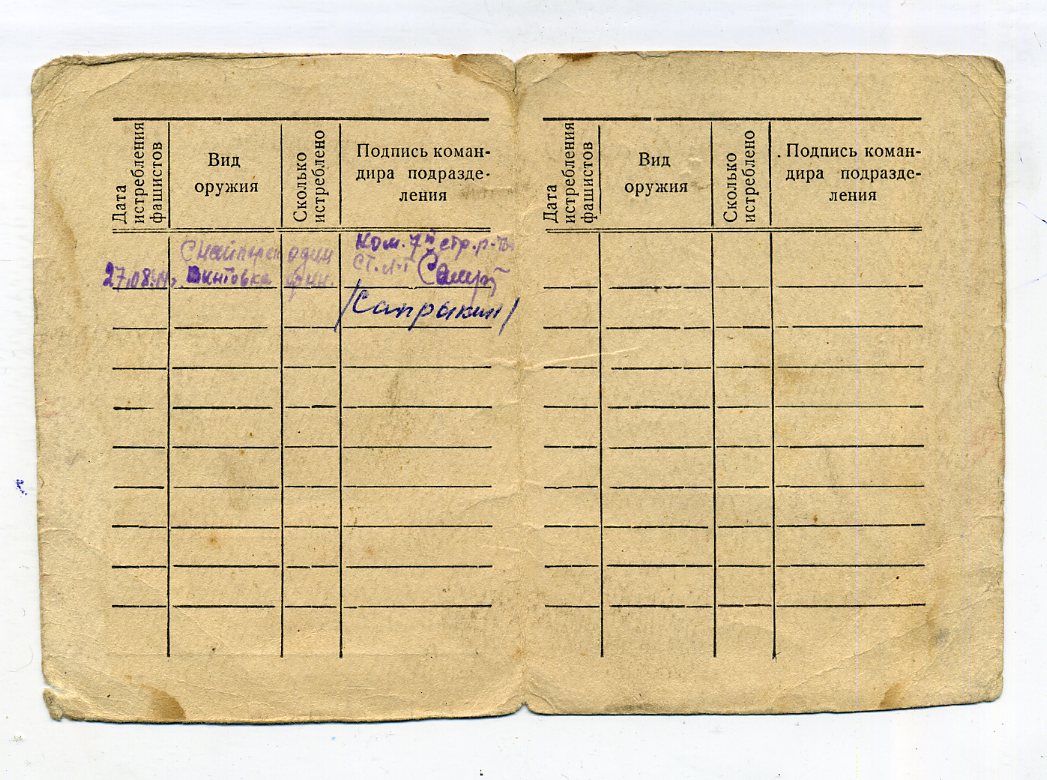 Дата истребления фашистов
Вид
оружия
Сколько истреблено
Подпись коман-
дира подразде-
ления
Снайперск один Ком. 7й стр. р-
27.08. Винтовка фин. ст. л-т
/Сапрыкин/
Дата истребления фашистов
Вид
оружия
Сколько истреблено
Подпись коман-
дира подразде-
ления